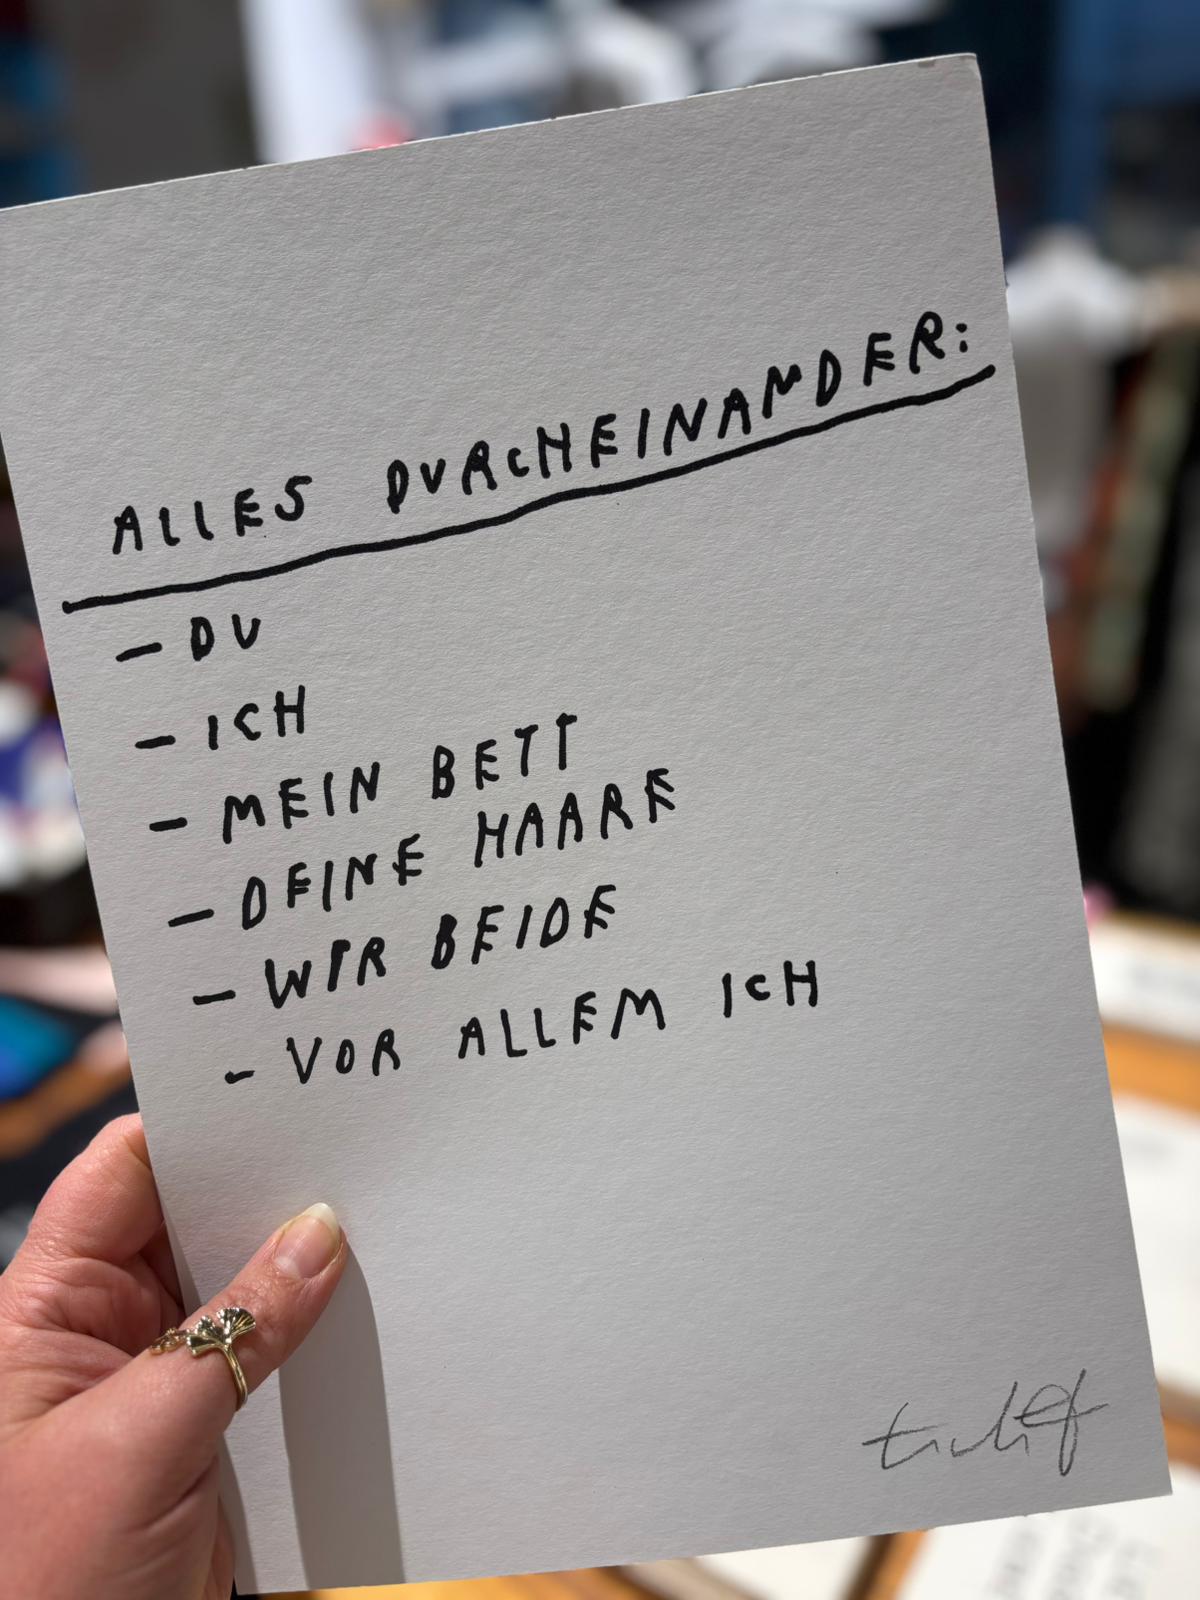 ALLES DURCHEINANDER:
- DU
- ICH
- MEIN BETT
- DEINE HAARE
- WIR BEIDE
- VOR ALLEM ICH